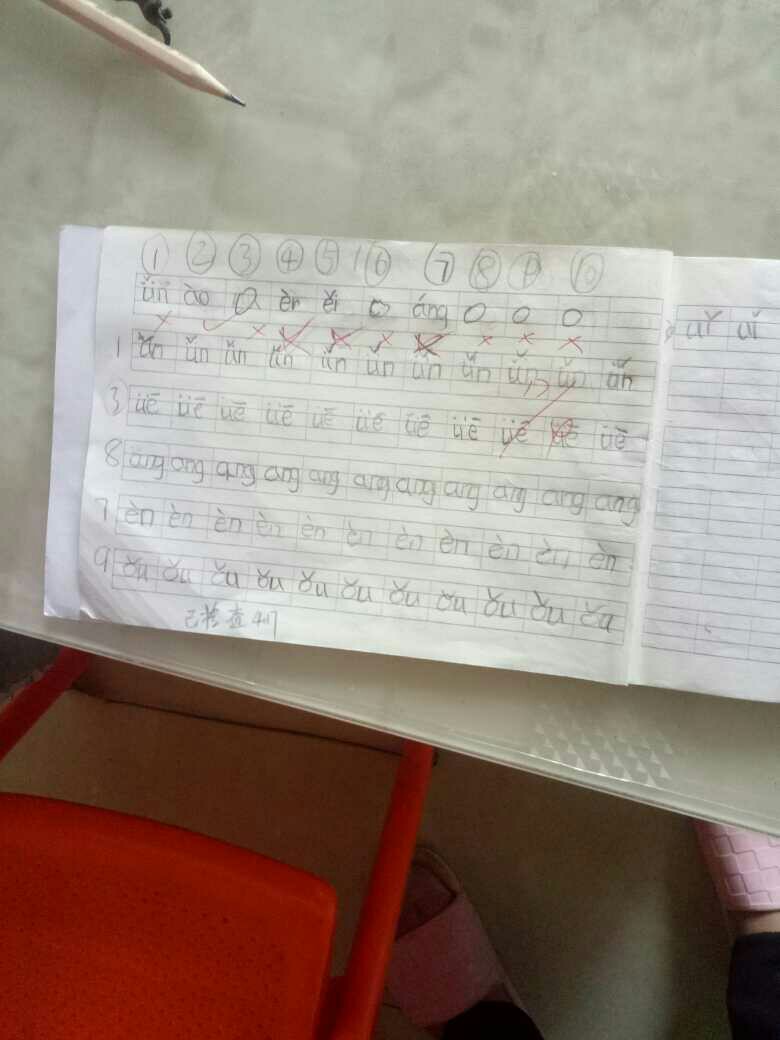 ① ② ③ ④ ⑤ ⑥ ⑦ ⑧ ⑨ ⑩
ǚn ào O èr ěi O áng O O O
1 ǚn ǚn ǚn ǚn ǚn ǚn ǚn ǚn ǚn ǚn ǚn
3 üē üē üē üē üē üē üē üē üē üē üē
8 āng āng āng āng āng āng āng āng āng āng āng
7 èn èn èn èn èn èn èn èn èn èn èn
9 ǒu ǒu ǒu ǒu ǒu ǒu ǒu ǒu ǒu ǒu ǒu
已检查4.17